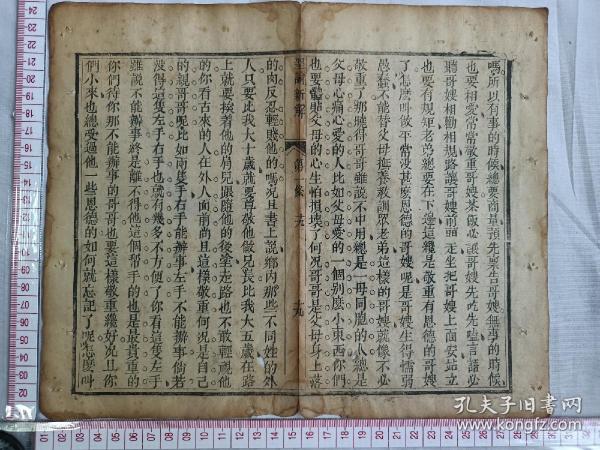 嗎所以有事的時候總要商量預先禀告哥嫂無事的時候
也要相愛常常敬重哥嫂茶飯必讓哥嫂先吃先嘗言語必
聽哥嫂相勸相規路讓哥嫂前面走坐把哥嫂上面安站立
也要有規矩老弟總要在下邊這纔是敬重有恩德的哥嫂
了怎麽叫做平常没甚麽恩德的哥嫂呢是哥嫂生得懦弱
愚蠢不能替父母撫養教訓眾老弟這樣的哥嫂就像不必
敬重了那曉得哥哥雖說不中用總是一母同胞的人總是
父母心痛心愛的人比如父母愛的一個別麽小東西你們
也要體貼父母的心生怕損壞了何况哥哥是父母身上落
聖諭新解
第一條
十九
的肉反忍輕賤他的嗎况且書上說鄉内那些不同姓的外
人只要比我大十歲就要尊敬他做兄長比我大五歲在路
上就要挨着他的肩兒跟隨他的後塵走路也不敢輕視他
的你看古來的人在外人面前尚且這樣敬重何况是自己
的親哥哥呢比如兩隻手右手能辦事左手不能辦事倘若
没得這隻左手右手也就有幾多不方便了你看這隻左手
雖說不能辦事終是離不得他這個幫手的也是最貴重的
你們待你那不能辦事的哥哥也要這樣敬重纔好况且你
們小來也總受過他一些恩德的如何就忘記了呢怎麽叫
孔夫子旧书网
www.kongfz.com